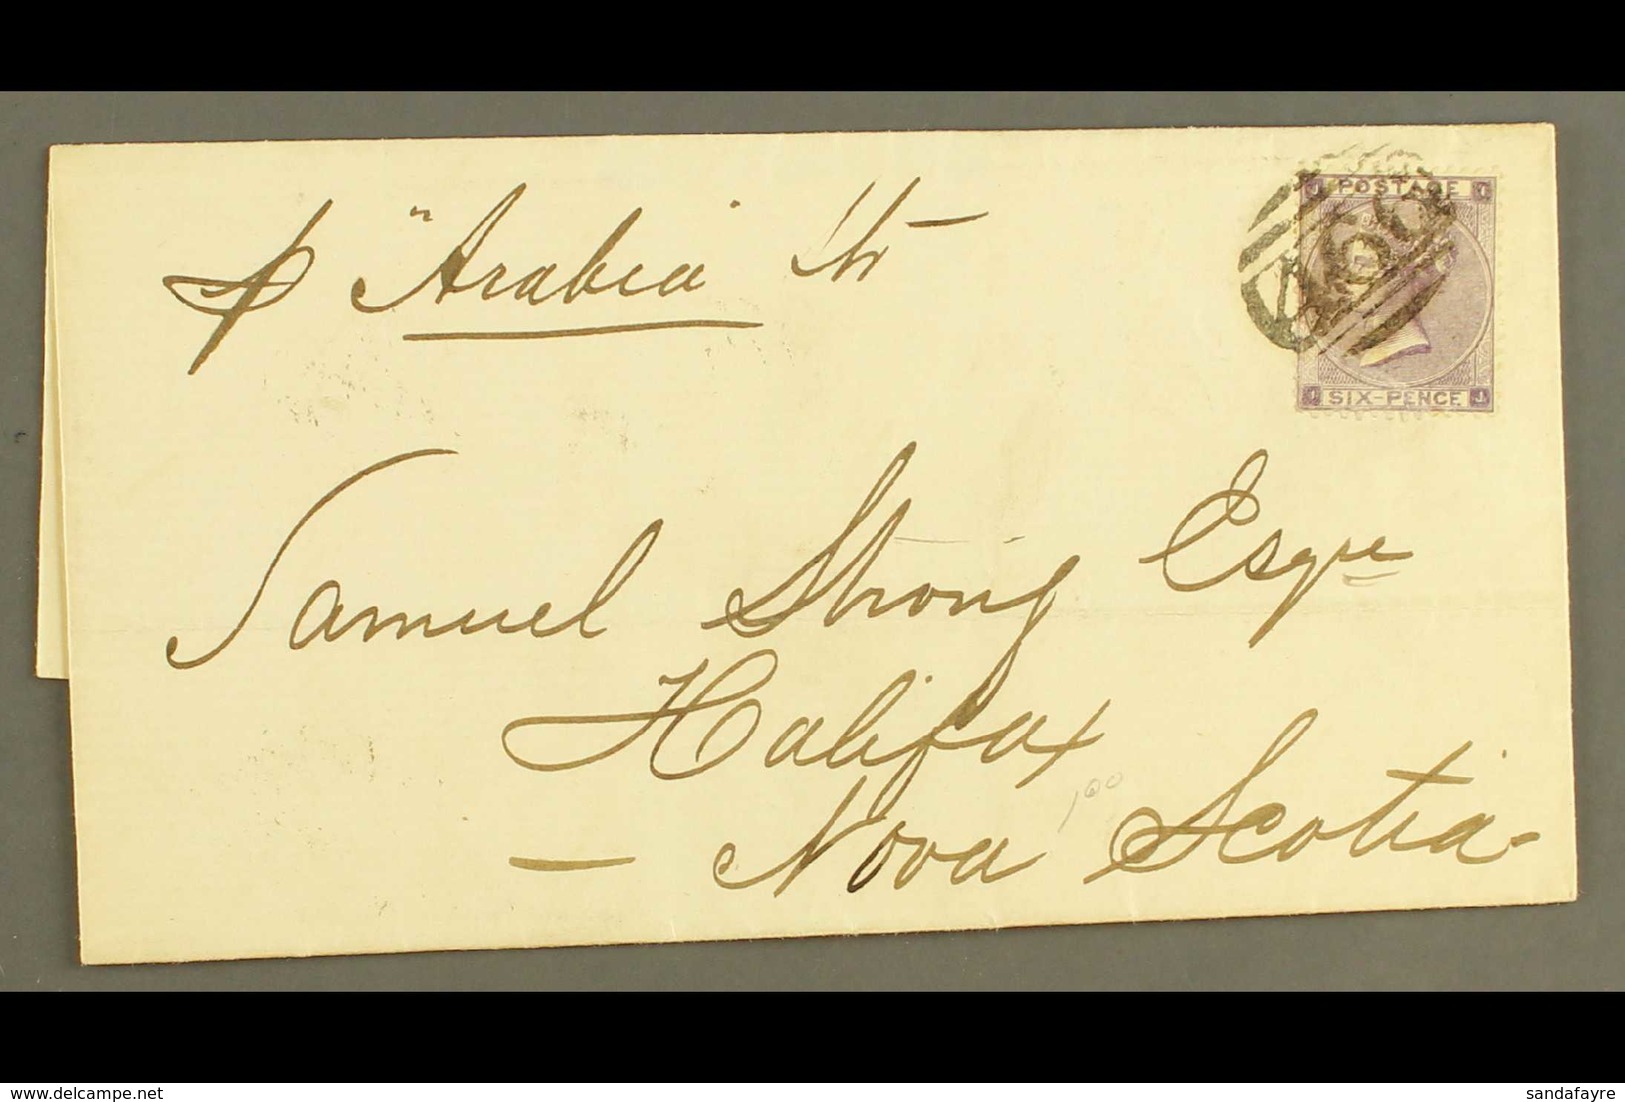 p "Arabia" Str
POSTAGE
A66
SIX-PENCE
Samuel Strong Esqre
Halifax
100
— Nova Scotia
www.delcampe.net
sandafayre